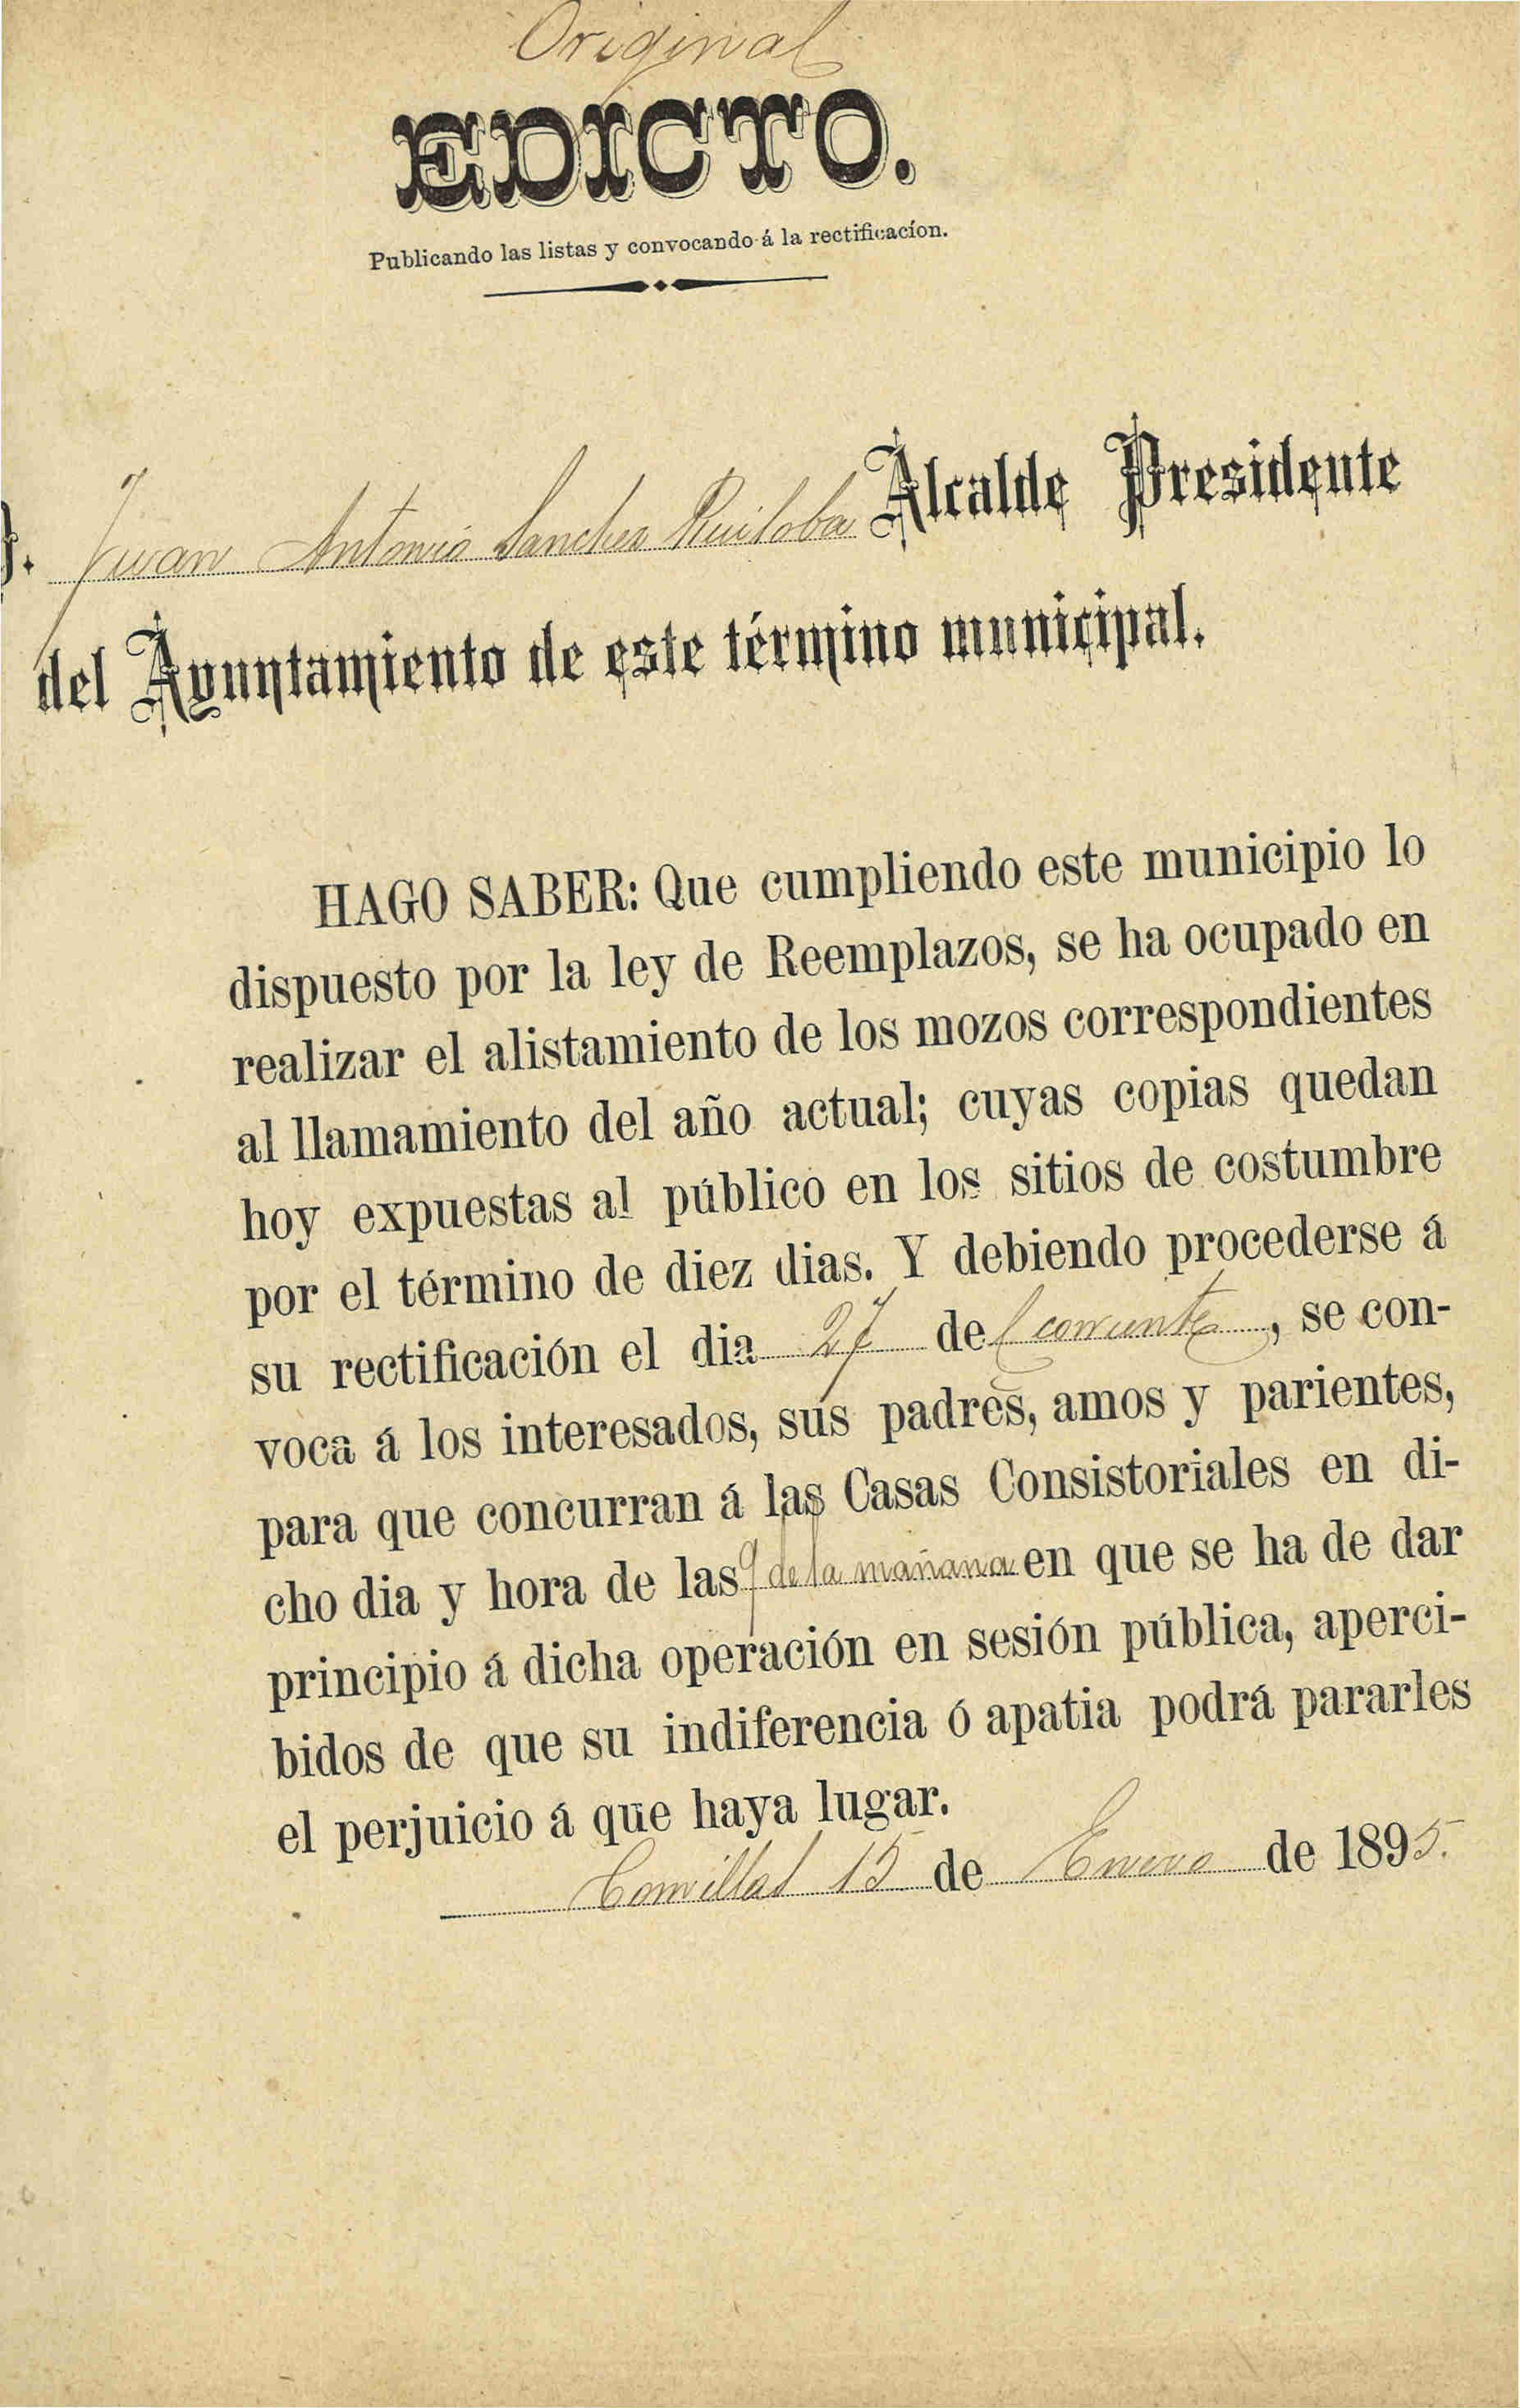 Original
EDICTO.
Publicando las listas y convocando á la rectificacíon.
D. Juan Antonio Sanchez Ruiloba Alcalde Presidente
del Ayuntamiento de este término municipal.
HAGO SABER: Que cumpliendo este municipio lo
dispuesto por la ley de Reemplazos, se ha ocupado en
realizar el alistamiento de los mozos correspondientes
al llamamiento del año actual; cuyas copias quedan
hoy expuestas al público en los sitios de costumbre
por el término de diez dias. Y debiendo procederse á
su rectificación el dia 27 del corriente, se con-
voca á los interesados, sus padres, amos y parientes,
para que concurran á las Casas Consistoriales en di-
cho dia y hora de las 9 de la mañana en que se ha de dar
principio á dicha operación en sesión pública, aperci-
bidos de que su indiferencia ó apatia podrá pararles
el perjuicio á que haya lugar.
Comillas 15 de Enero de 1895.